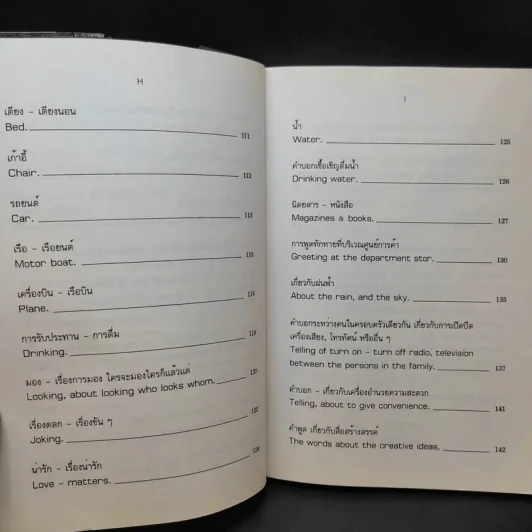 H
เตียง - เตียงนอน
Bed. 111
เก้าอี้
Chair. 112
รถยนต์
Car. 113
เรือ - เรือยนต์
Motor boat. 115
เครื่องบิน - เรือบิน
Plane. 116
การรับประทาน - การดื่ม
Drinking. 118
มอง - เรื่องการมอง ใครจะมองใครก็แล้วแต่
Looking, about looking who looks whom. 120
เรื่องตลก - เรื่องขัน ๆ
Joking. 122
น่ารัก - เรื่องน่ารัก
Love - matters. 124
I
น้ำ
Water. 125
คำบอกเชื้อเชิญดื่มน้ำ
Drinking water. 126
นิตยสาร - หนังสือ
Magazines & books. 127
การพูดทักทายที่บริเวณศูนย์การค้า
Greeting at the department stor. 130
เกี่ยวกับฝนฟ้า
About the rain, and the sky. 135
คำบอกระหว่างคนในครอบครัวเดียวกัน เกี่ยวกับการเปิดปิด
เครื่องเสียง, โทรทัศน์ หรืออื่น ๆ
Telling of turn on - turn off radio, television
between the persons in the family. 137
คำบอก - เกี่ยวกับเครื่องอำนวยความสะดวก
Telling, about to give convenience. 141
คำพูด เกี่ยวกับสื่อสร้างสรรค์
The words about the creative ideas. 142